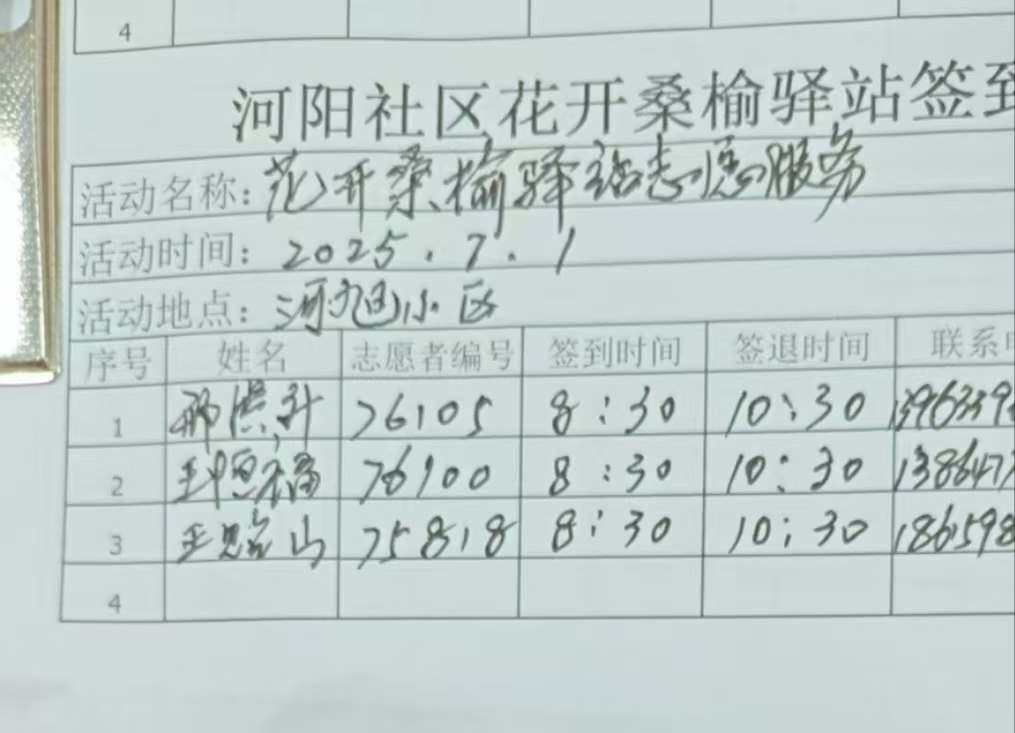 4
河阳社区花开桑榆驿站签到
活动名称：花开桑榆驿站志愿服务
活动时间：2025.7.1
活动地点：河旭小区
序号 姓名 志愿者编号 签到时间 签退时间 联系
1 邢洪升 76105 8:30 10:30 139639
2 王恒福 76100 8:30 10:30 138647
3 王思山 75818 8:30 10:30 186598
4